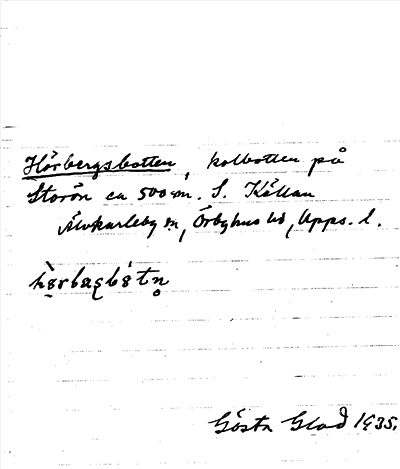 Hörbergsbotten, kolbotten på
Storön ca 500 m. S. Källan
Älvkarleby sn, Örbyhus hd, Upps. l.
Gösta Glad 1935.